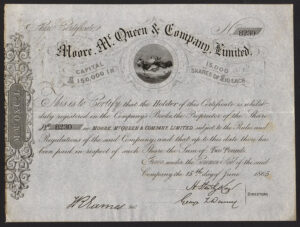 Share Certificate
No 8230
Moore, McQueen & Company, Limited.
CAPITAL £150,000 IN
15,000 SHARES OF £10 EACH
This is to Certify that the Holder of this Certificate is entitled
duly registered in the Company's Books, the Proprietor of the Share
No 8230 in MOORE, McQUEEN & COMPANY LIMITED, subject to the Rules and
Regulations of the said Company; and that up to this date there has
been paid in respect of such Share the Sum of Two Pounds.
Given under the Common Seal of the said
Company the 15th day of June 1865
DIRECTORS